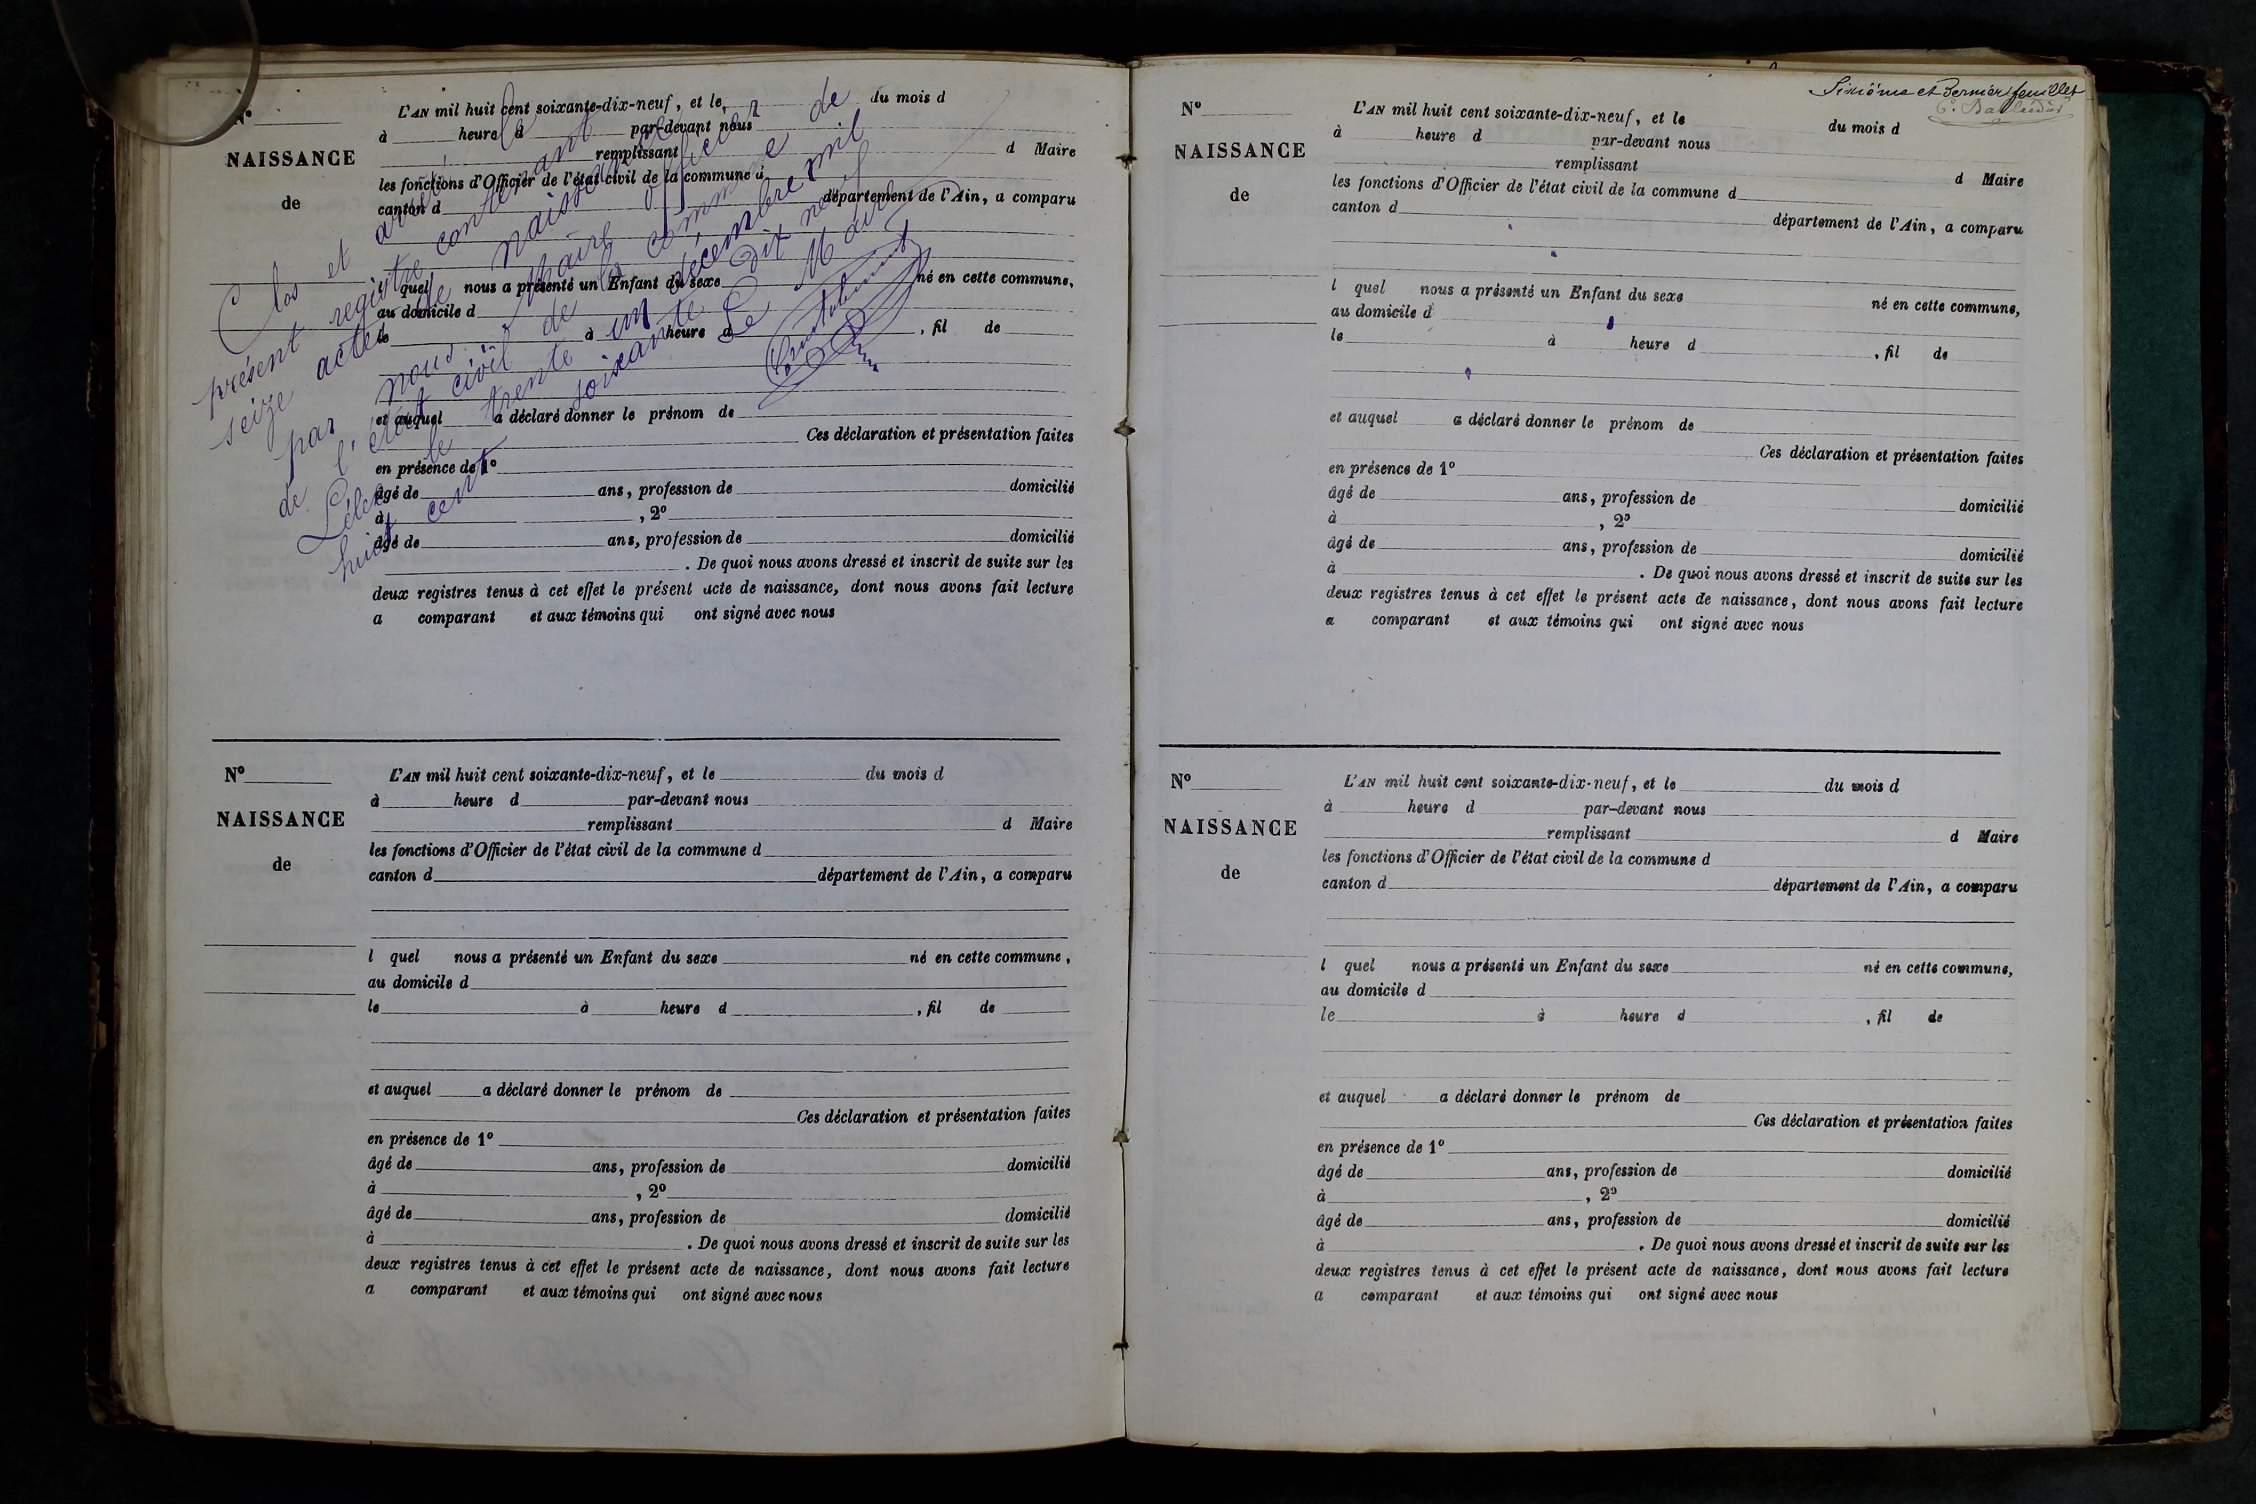 Nº
NAISSANCE
de
L'AN mil huit cent soixante-dix-neuf, et le du mois d
à heure d par-devant nous
remplissant d Maire
les fonctions d'Officier de l'état civil de la commune d
canton d département de l'Ain, a comparu
l quel nous a présenté un Enfant du sexe né en cette commune,
au domicile d
le à heure d , fil de
et auquel a déclaré donner le prénom de
Ces déclaration et présentation faites
en présence de 1º
âgé de ans, profession de domicilié
à , 2º
âgé de ans, profession de domicilié
. De quoi nous avons dressé et inscrit de suite sur les
deux registres tenus à cet effet le présent acte de naissance, dont nous avons fait lecture
a comparant et aux témoins qui ont signé avec nous
Clos et arrêté le
présent registre contenant
seize actes de naissance
par nous Maire officier de
de l'état civil de la commune
Lélex le trente un décembre mil
huit cent soixante dit neuf
Le Maire
Nº
NAISSANCE
de
L'AN mil huit cent soixante-dix-neuf, et le du mois d
à heure d par-devant nous
remplissant d Maire
les fonctions d'Officier de l'état civil de la commune d
canton d département de l'Ain, a comparu
l quel nous a présenté un Enfant du sexe né en cette commune,
au domicile d
le à heure d , fil de
et auquel a déclaré donner le prénom de
Ces déclaration et présentation faites
en présence de 1º
âgé de ans, profession de domicilié
à , 2º
âgé de ans, profession de domicilié
à . De quoi nous avons dressé et inscrit de suite sur les
deux registres tenus à cet effet le présent acte de naissance, dont nous avons fait lecture
a comparant et aux témoins qui ont signé avec nous
Sixième et dernier feuillet
Nº
NAISSANCE
de
L'AN mil huit cent soixante-dix-neuf, et le du mois d
à heure d par-devant nous
remplissant d Maire
les fonctions d'Officier de l'état civil de la commune d
canton d département de l'Ain, a comparu
l quel nous a présenté un Enfant du sexe né en cette commune,
au domicile d
le à heure d , fil de
et auquel a déclaré donner le prénom de
Ces déclaration et présentation faites
en présence de 1º
âgé de ans, profession de domicilié
à , 2º
âgé de ans, profession de domicilié
à . De quoi nous avons dressé et inscrit de suite sur les
deux registres tenus à cet effet le présent acte de naissance, dont nous avons fait lecture
a comparant et aux témoins qui ont signé avec nous
Nº
NAISSANCE
de
L'AN mil huit cent soixante-dix-neuf, et le du mois d
à heure d par-devant nous
remplissant d Maire
les fonctions d'Officier de l'état civil de la commune d
canton d département de l'Ain, a comparu
l quel nous a présenté un Enfant du sexe né en cette commune,
au domicile d
le à heure d , fil de
et auquel a déclaré donner le prénom de
Ces déclaration et présentation faites
en présence de 1º
âgé de ans, profession de domicilié
à , 2º
âgé de ans, profession de domicilié
à . De quoi nous avons dressé et inscrit de suite sur les
deux registres tenus à cet effet le présent acte de naissance, dont nous avons fait lecture
a comparant et aux témoins qui ont signé avec nous